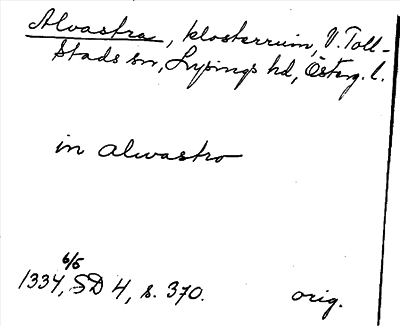 Alvastra, klosterruin, V. Toll-
stads sn, Lysings hd, Österg. l.
in alwastro
6/5
1334, SD 4, s. 370. orig.